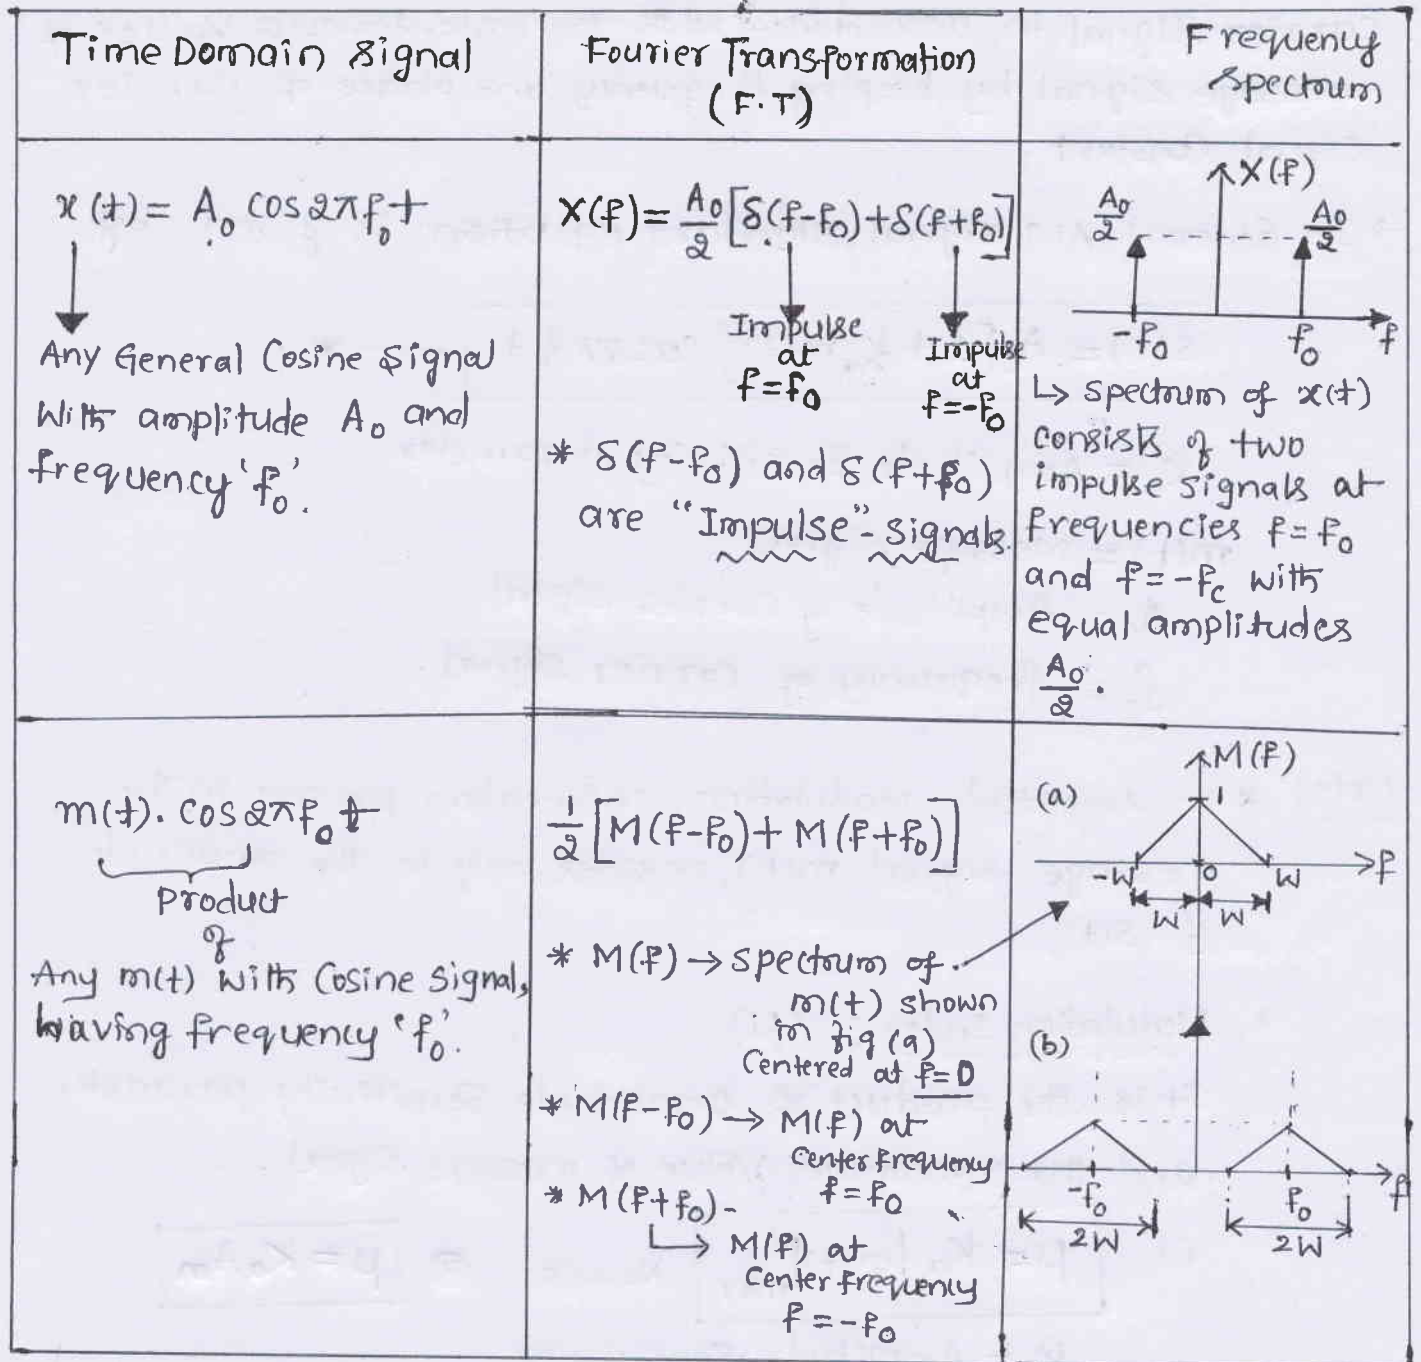 Time Domain Signal
Fourier Transformation
(F.T)
Frequency
Spectrum
x(t) = A₀ cos2πf₀t
Any General Cosine Signal
With amplitude A₀ and
frequency 'f₀'.
X(f) = A₀/2 [δ(f-f₀) + δ(f+f₀)]
Impulse
at
f=f₀
Impulse
at
f=-f₀
* δ(f-f₀) and δ(f+f₀)
are "Impulse"-signals.
X(f)
A₀/2
A₀/2
-f₀
f₀
f
↳ Spectrum of x(t)
consists of two
impulse signals at
frequencies f=f₀
and f=-fc with
equal amplitudes
A₀/2.
m(t). cos2πf₀t
Product
of
Any m(t) with Cosine signal,
having frequency 'f₀'.
1/2 [M(f-f₀) + M(f+f₀)]
* M(f) → spectrum of
m(t) shown
in fig (a)
Centered at f=0
* M(f-f₀) → M(f) at
Center frequency
f=f₀
* M(f+f₀)-
↳ M(f) at
Center frequency
f=-f₀
M(f)
(a)
1
-W
0
W
f
W
W
(b)
-f₀
f₀
f
2W
2W